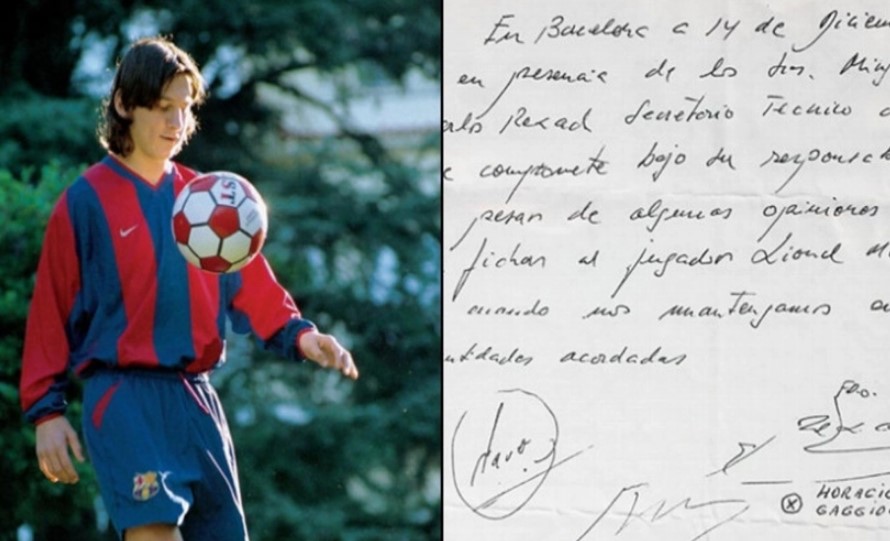 En Barcelona a 14 de Diciem
en presencia de los Sres. Ming
Rexad Secretario Tecnico
compromete bajo su responsab
pesar de algunas opiniones
fichar al jugador Lionel M
cuando nos mantengamos
ntidades acordadas
HORACIO
GAGGIO
ST